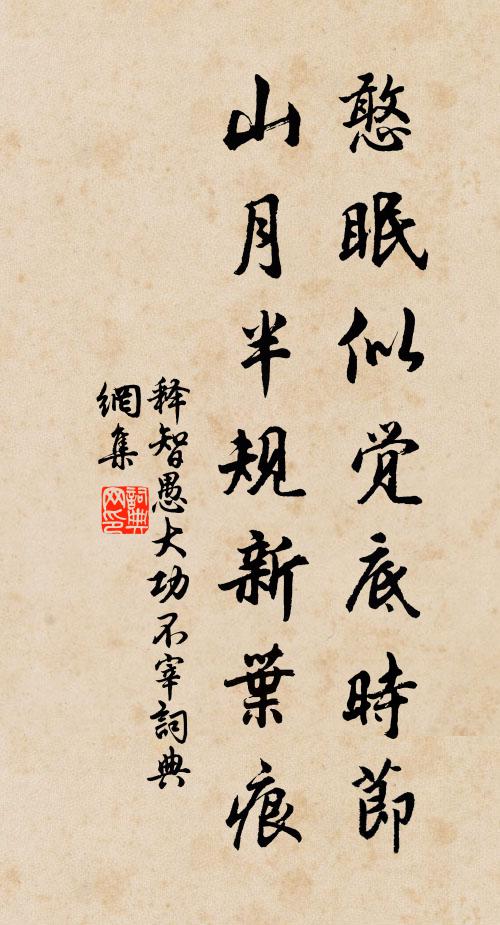 憨眠似觉底時節
山月半規新葉痕
释智愚大功不宰詞典
網集
詞典
网印